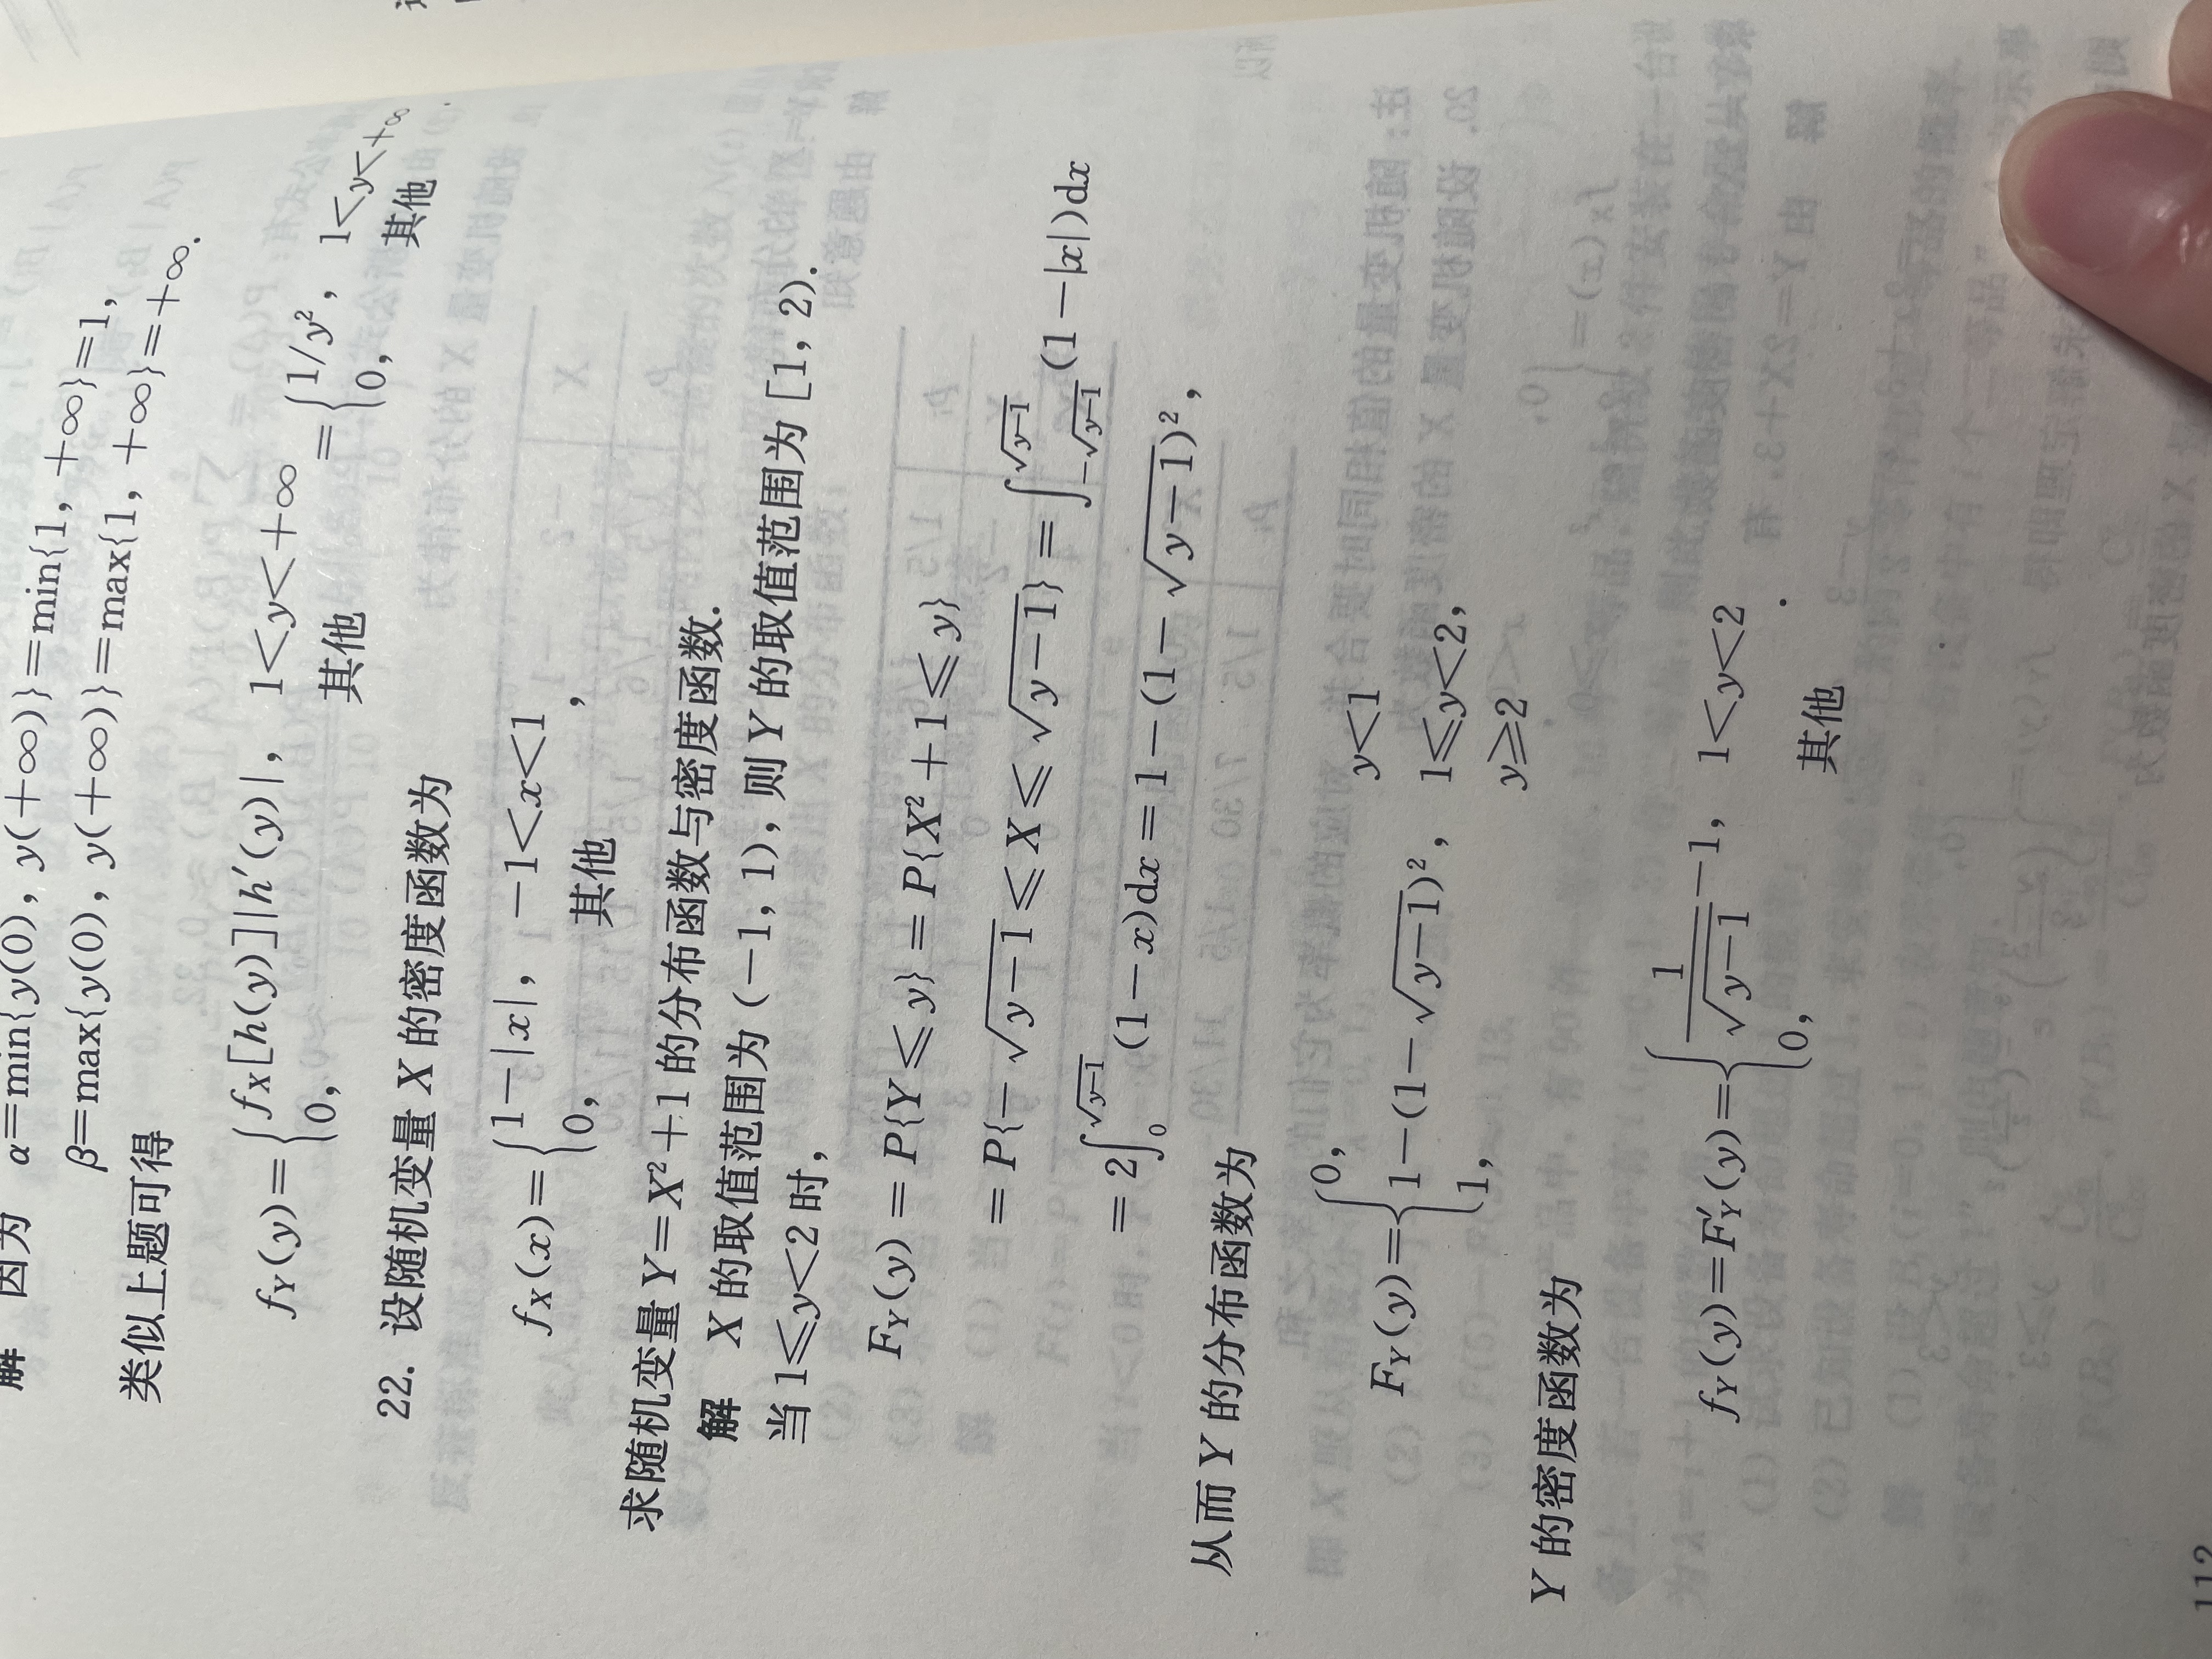 解 因为 α=min{y(0), y(+∞)}=min{1, +∞}=1,
β=max{y(0), y(+∞)}=max{1, +∞}=+∞.
类似上题可得
f_Y(y)={f_X[h(y)]|h′(y)|, 1<y<+∞ ={1/y², 1<y<+∞
0, 其他 0, 其他.
22. 设随机变量 X 的密度函数为
f_X(x)={1-|x|, -1<x<1
0, 其他,
求随机变量 Y=X²+1 的分布函数与密度函数.
解 X 的取值范围为 (-1, 1), 则 Y 的取值范围为 [1, 2).
当 1≤y<2 时,
F_Y(y) = P{Y≤y} = P{X²+1≤y}
= P{-√(y-1)≤X≤√(y-1)} = ∫_{-√(y-1)}^{√(y-1)}(1-|x|)dx
= 2∫_0^{√(y-1)}(1-x)dx = 1-(1-√(y-1))²,
从而 Y 的分布函数为
F_Y(y)={0, y<1
1-(1-√(y-1))², 1≤y<2,
1, y≥2
Y 的密度函数为
f_Y(y)=F′_Y(y)={1/√(y-1)-1, 1<y<2
0, 其他.
112